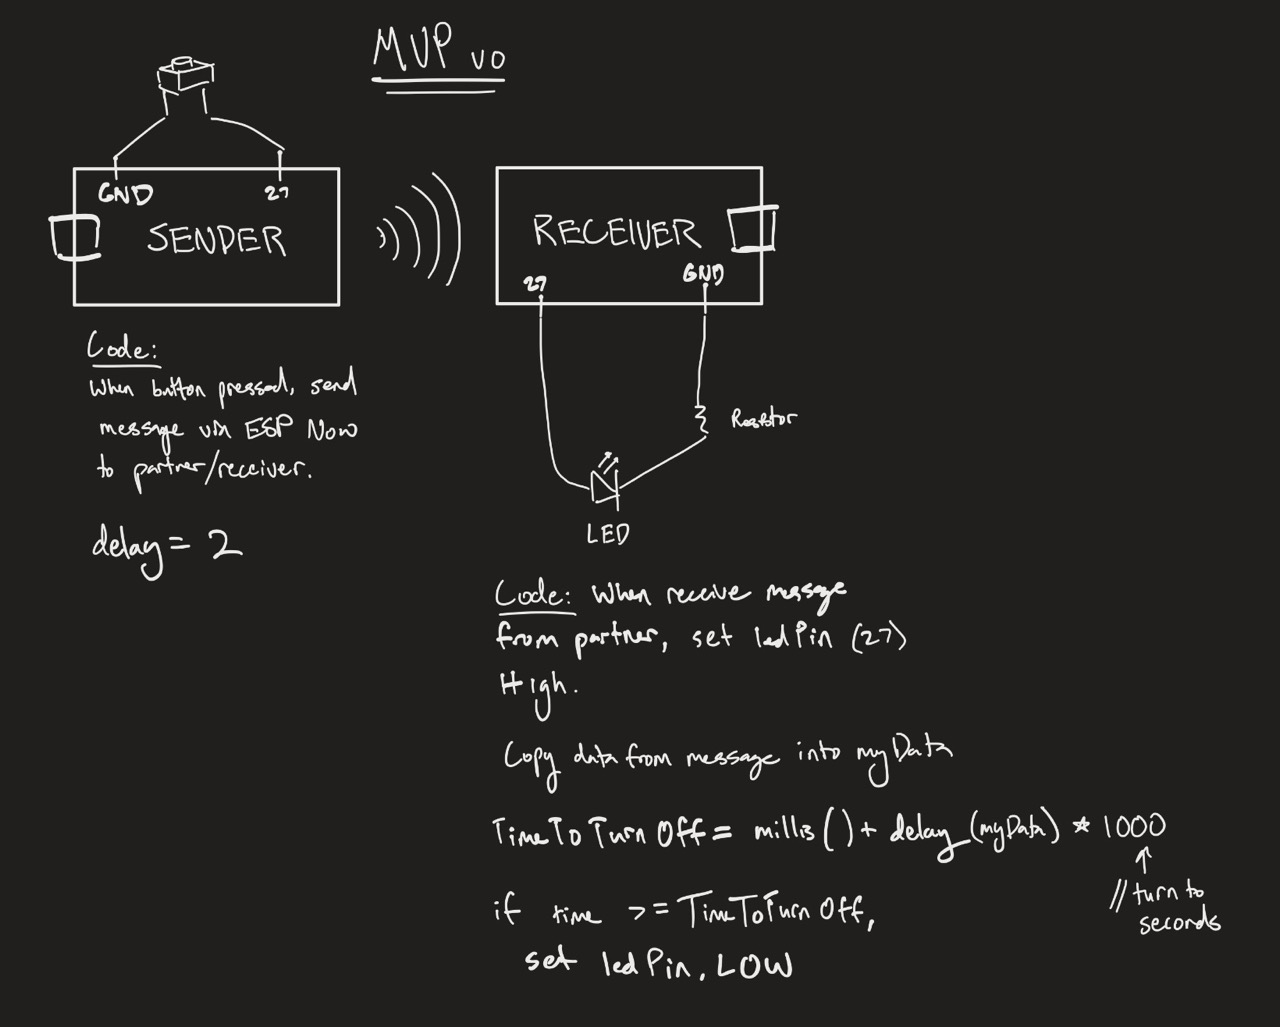 MVP v0
GND
27
SENDER
RECEIVER
27
GND
Code:
When button pressed, send
message via ESP Now
to partner/receiver.
delay = 2
Resistor
LED
Code: When receive message
from partner, set ledPin (27)
High.
Copy data from message into myData
TimeToTurnOff = millis() + delay (myData) * 1000
// turn to
seconds
if time >= TimeToTurnOff,
set ledPin, LOW